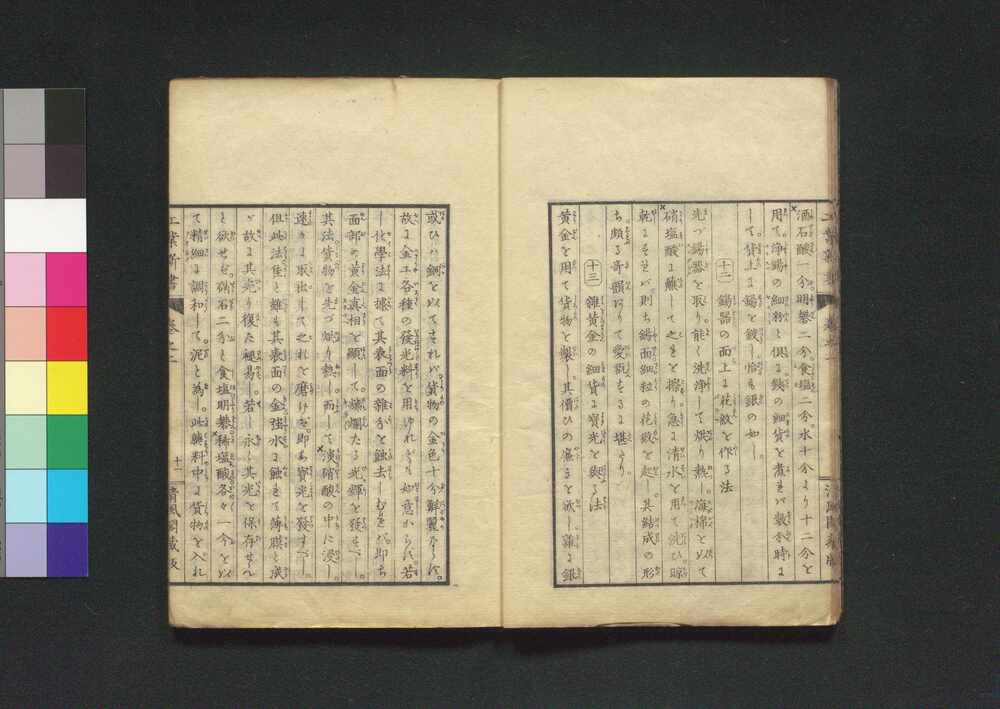 酒石酸一分。明礬二分。食塩二分。水十分より十二分を
用て浄錫の細粉と倶に鉄の細貨を煮れバ数分時に
して貨上に錫を鍍し恰も銀の如し。
十二 錫器の面上に花紋を作る法
先づ錫器を取り。能く洗浄して烘り熱し。海綿を以て
硝塩酸に蘸して之を擦り。急に清水を用て洗ひ晾
乾にすれバ則ち錫面細粒の花紋を起し。其結成の形
ち頗る奇韻ありて愛翫をするに堪へり
十三 雑黄金の細貨に寳光を與る法
黄金を用て貨物を製し。其價ひの廉なるを欲し。雑るに銀
或ひハ銅を以てすれバ。貨物の金色十分鮮麗ならず。
故に金工各種の發光料を用ゆれども。如意からず。若
し化學法に據て其表面の雑分を蝕去しむれバ。即ち
面部の黄金真相を顕して。燦爛たる光輝を發す。
其法貨物を先づ烘り熱し。而して淡硝酸の中に浸し。
速かに取出して之れを磨けバ。即ち寳光を發すべし。
但此法佳と雖も其表面の金強水に蝕せて薄膜を成
す故に其光り復た褪易し。若し永く其光を保存せん
と欲せば。硇石二分と食塩明礬稀塩酸各々一分を以
て精細に調和して。泥と為し。此膽料中に貨物を入れ
工業新書 巻之二 十一 清風閣蔵板